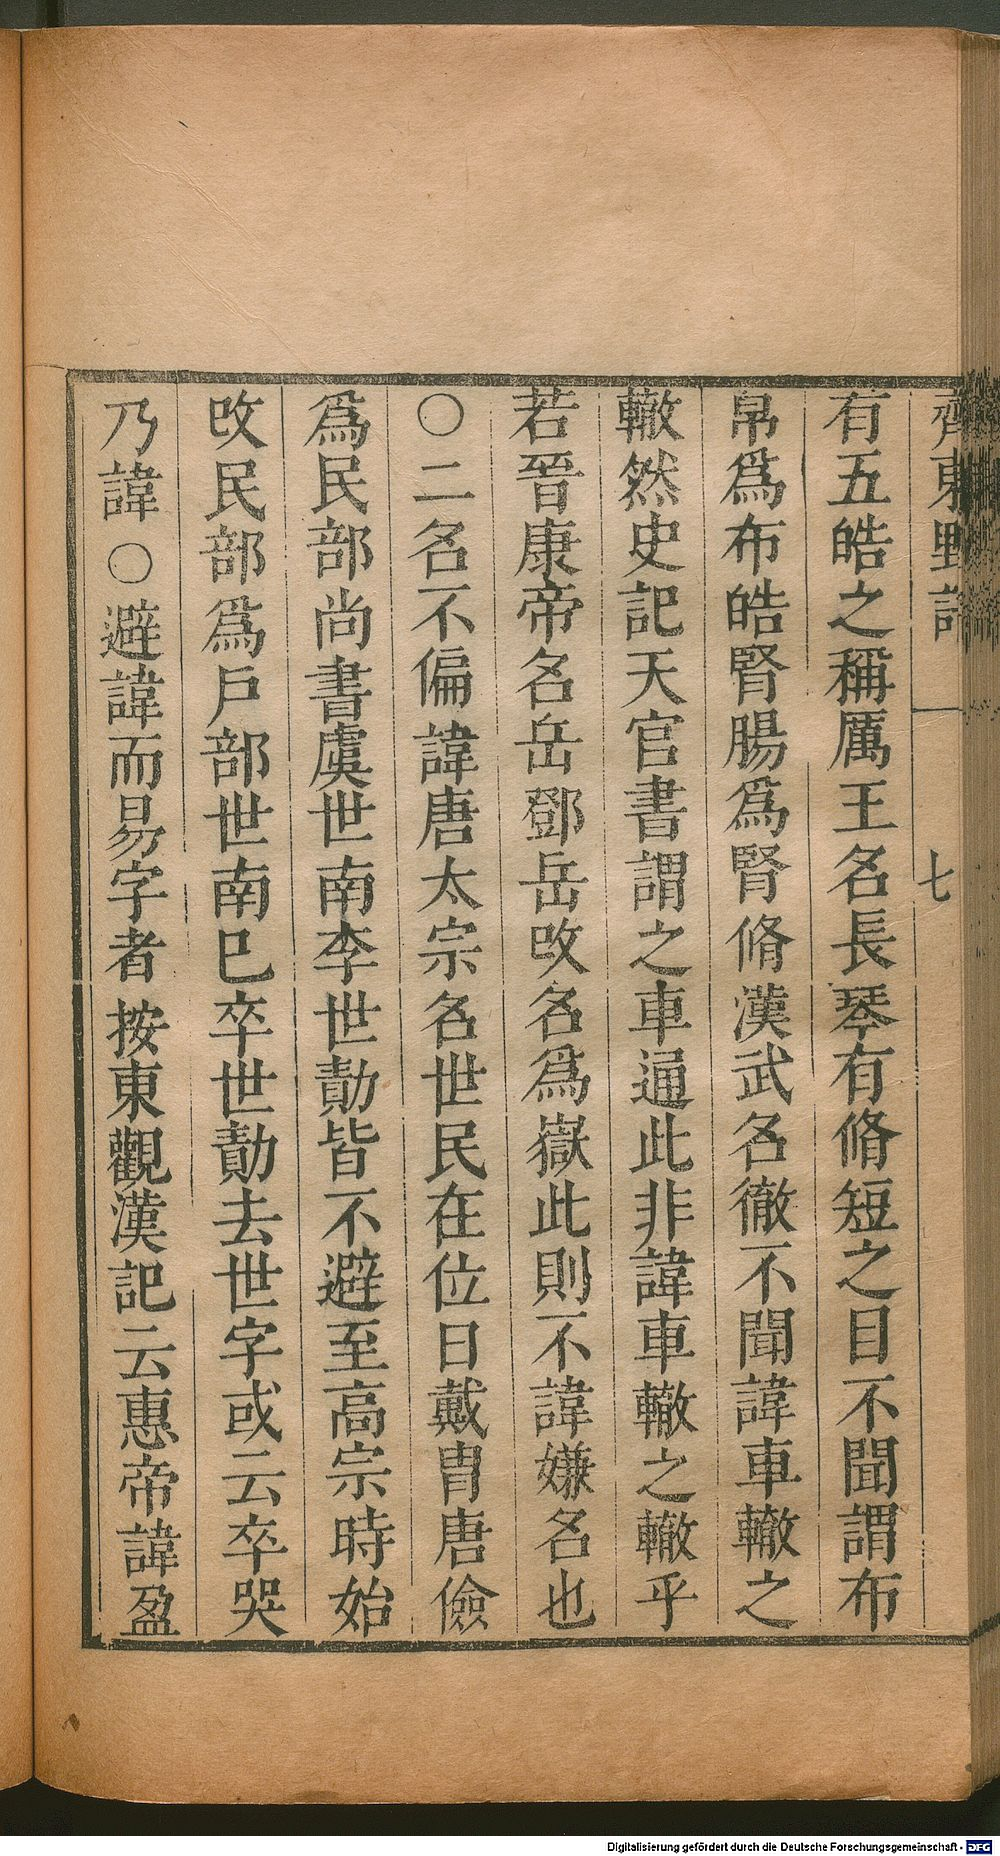 齊東野語
七
有五皓之稱厲王名長琴有脩短之目不聞謂布
帛爲布皓腎腸爲腎脩漢武名徹不聞諱車轍之
轍然史記天官書謂之車通此非諱車轍之轍乎
若晉康帝名岳鄧岳改名爲嶽此則不諱嫌名也
〇二名不偏諱唐太宗名世民在位日戴冑唐儉
爲民部尚書虞世南李世勣皆不避至高宗時始
改民部爲戶部世南已卒世勣去世字或云卒哭
乃諱〇避諱而易字者按東觀漢記云惠帝諱盈
Digitalisierung gefördert durch die Deutsche Forschungsgemeinschaft - DFG